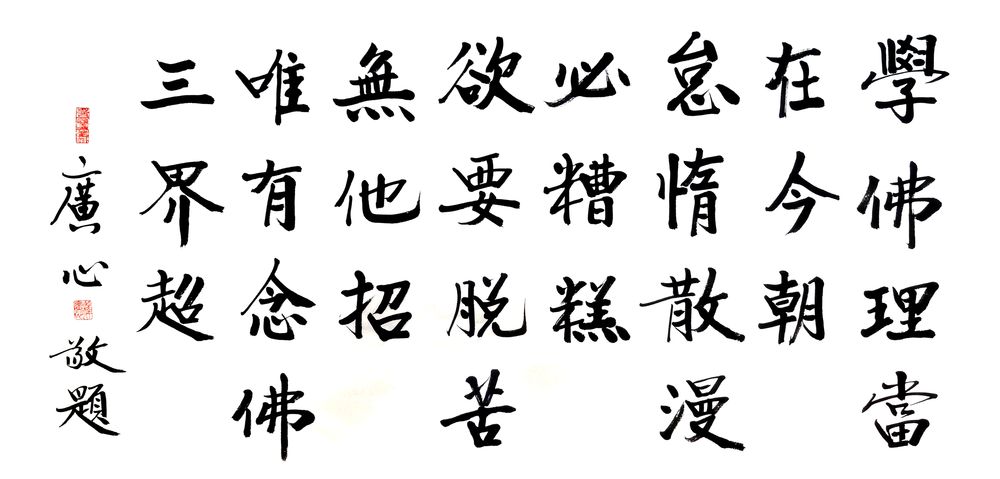 學佛理當
在今朝
怠惰散漫
必糟糕
欲要脫苦
無他招
唯有念佛
三界超
廣心敬題